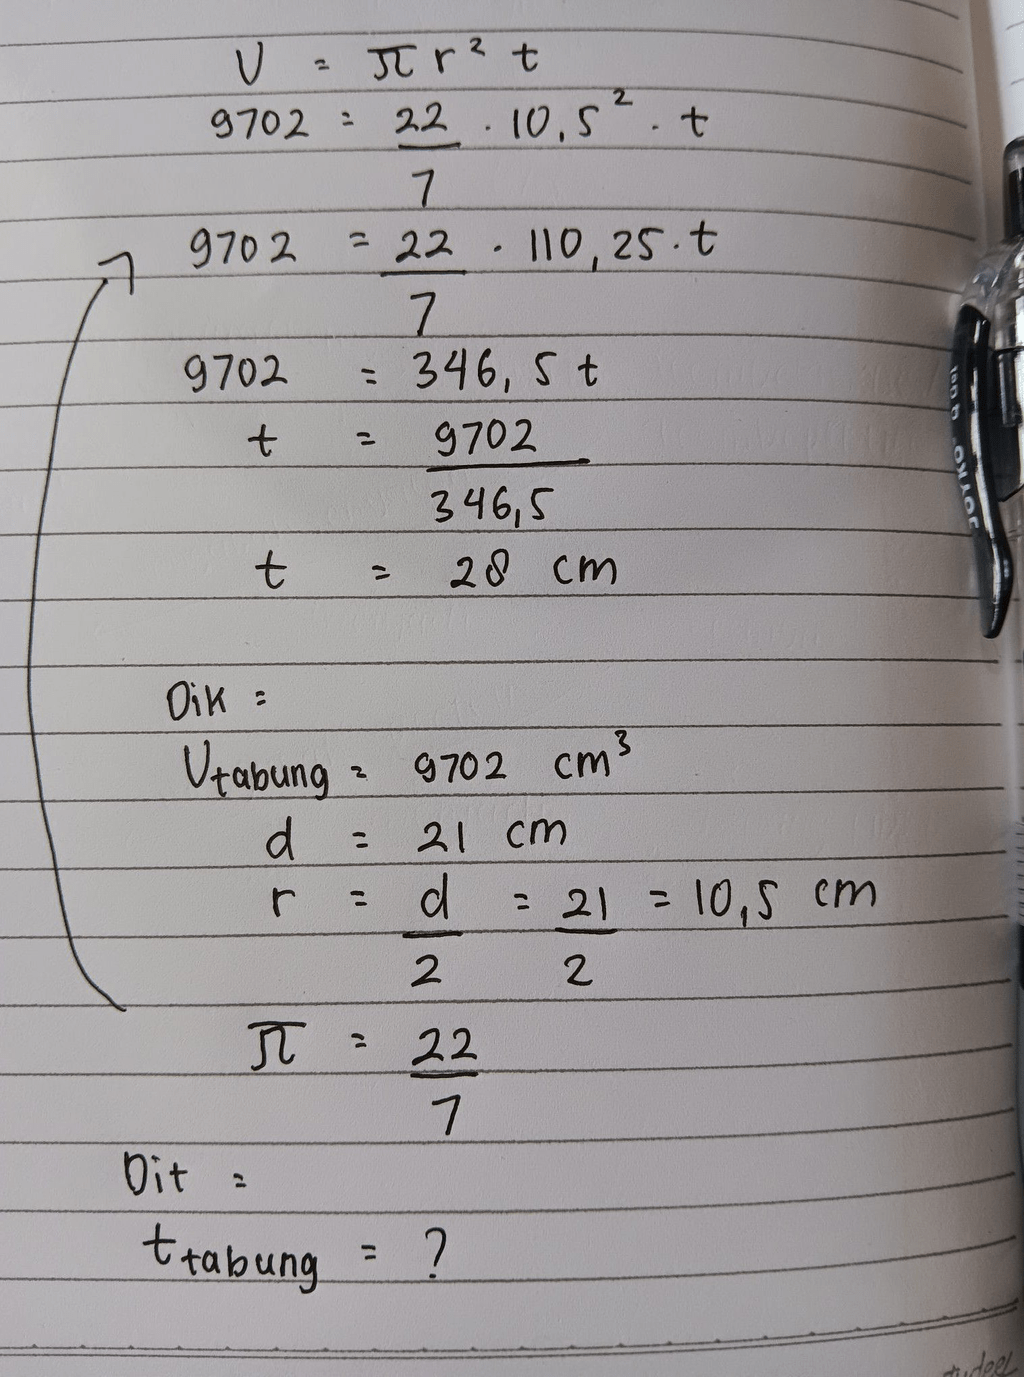 V = π r² t
9702 = 22/7 . 10,5² . t
9702 = 22/7 . 110,25 . t
9702 = 346,5 t
t = 9702/346,5
t = 28 cm
Dik =
Vtabung = 9702 cm³
d = 21 cm
r = d/2 = 21/2 = 10,5 cm
π = 22/7
Dit =
t tabung = ?
JOYKO